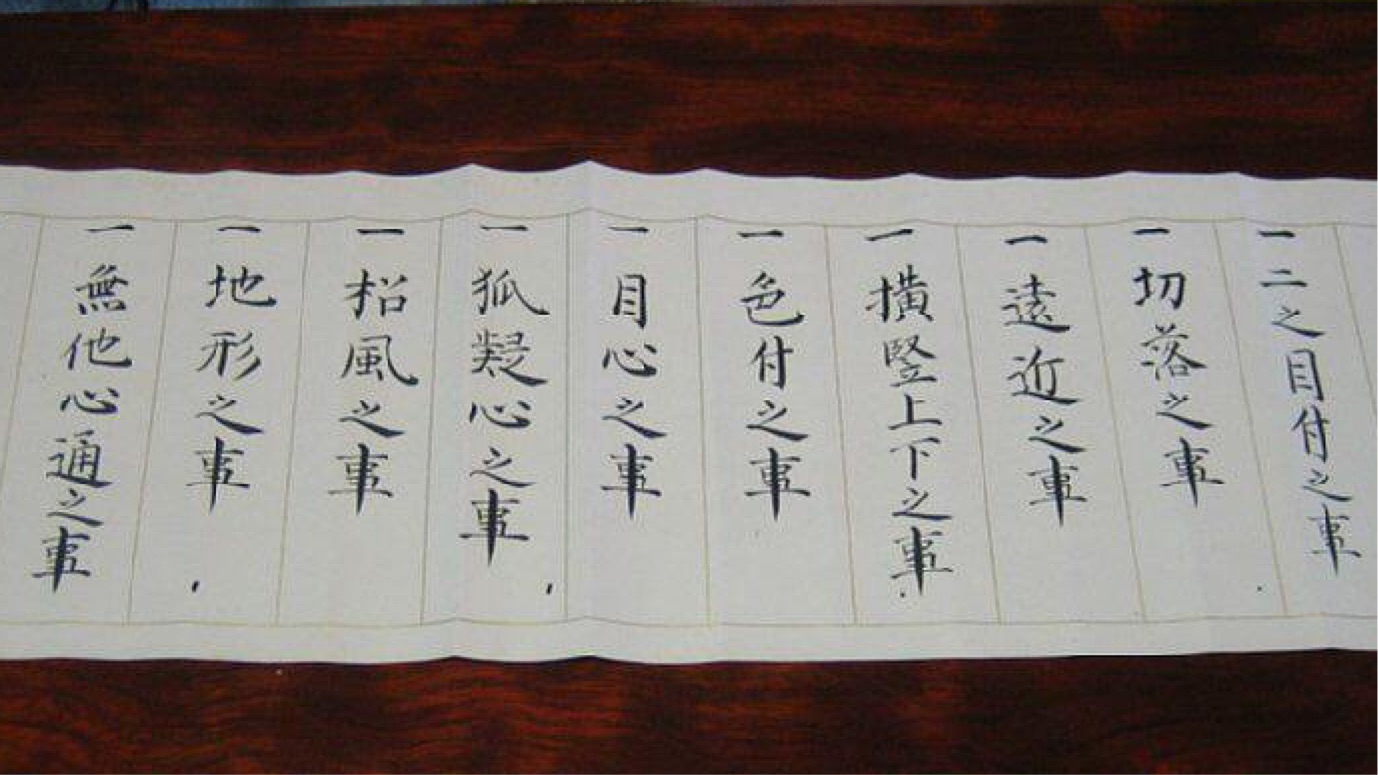 一二之目付之事
一切落之事
一遠近之事
一横竪上下之事
一色付之事
一目心之事
一狐疑心之事
一松風之事
一地形之事
一無他心通之事